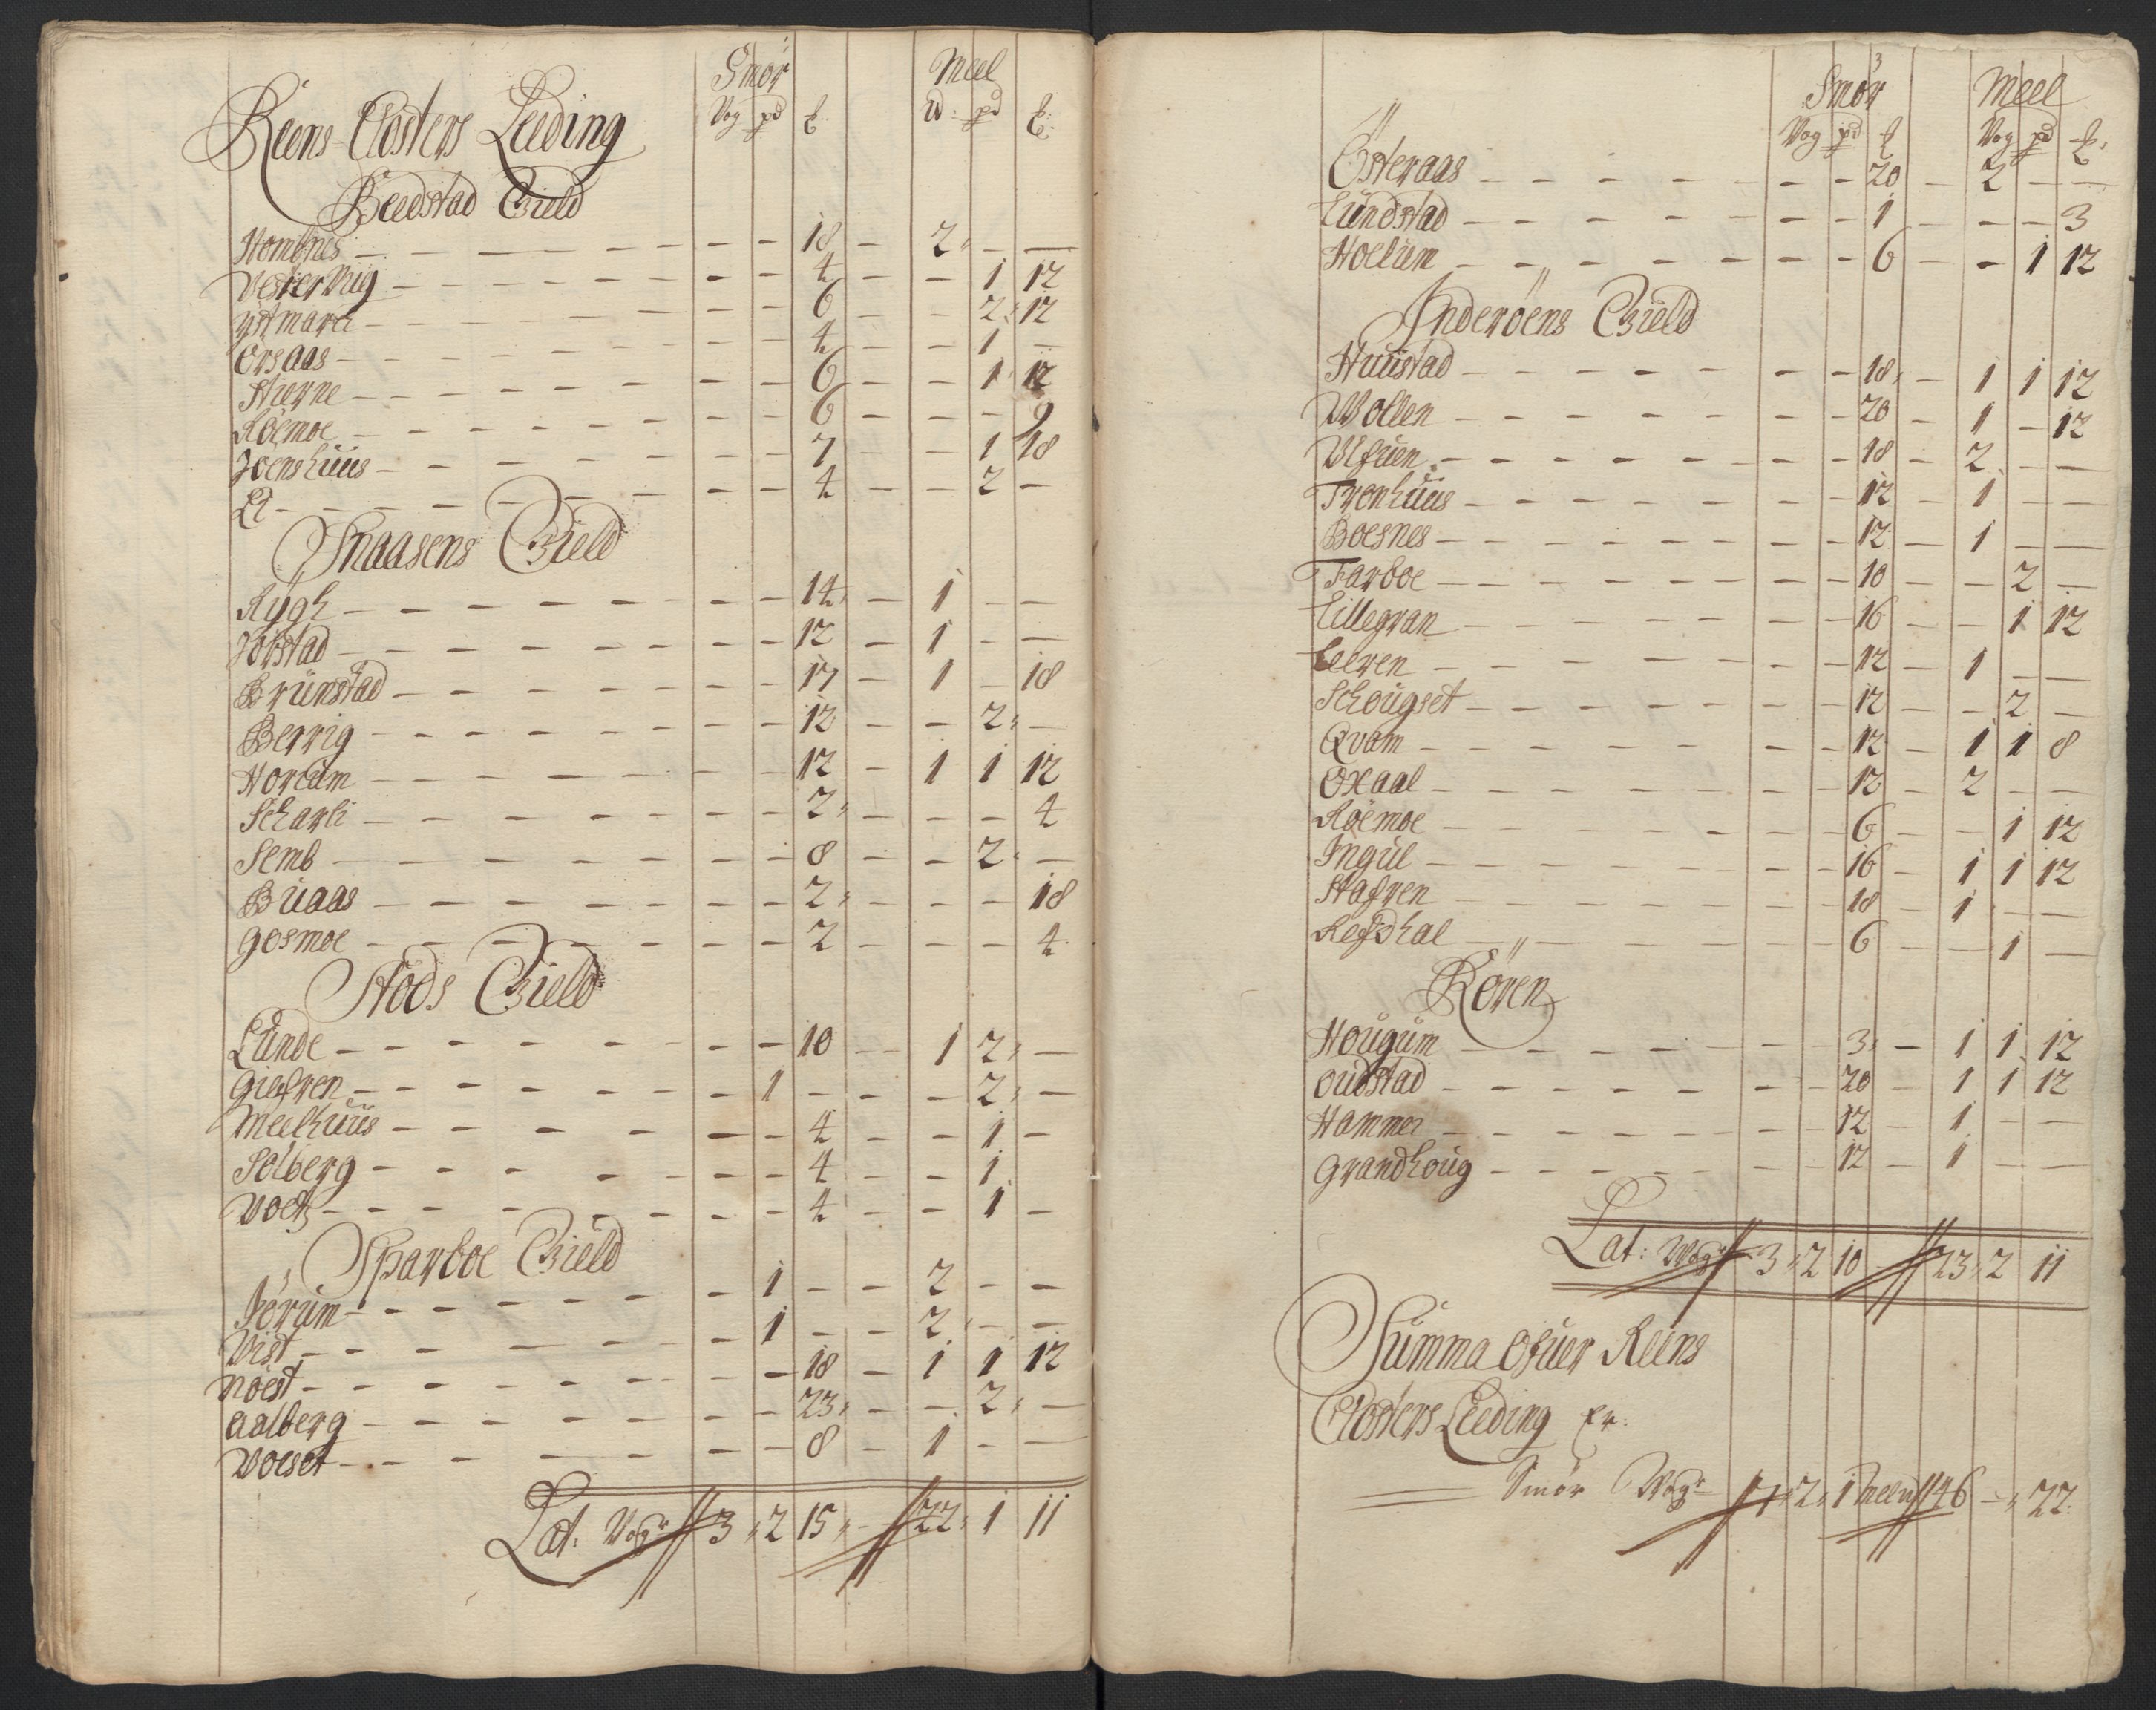 Smör Meel
Reens Closters Leeding Vog pd ℔ W: pd ℔:
Beedstad Gield
Hombnes — 18 — 2 — —
Vester Vüg — 4 — — 1 12
Ystmarch — 6 — — 2 12
Orsaas — 4 — — 1 —
Stierne — 6 — — 1 12
Röemoe — 6 — — — 9
Joenshuus — 7 — — 1 18
Ei — 4 — — 2 —
Snaasens Gield
Rygh — 14 — 1 — —
Jörstad — 12 — 1 — —
Brünstad — 17 — 1 — 18
Berrig — 12 — — 2 —
Horium — 12 — 1 1 12
Scharli — 2 — — — 4
Semb — 8 — — 2 —
Buaas — 2 — — — 18
Gosmoe — 2 — — — 4
Stods Gield
Lünde — 10 — 1 2 —
Giefren — 1 — — — 2 —
Meelhuus — 4 — — 1 —
Solberg — 4 — — 1
Voet — 4 — — 1 —
Sparboe Gield
Jörum — 1 — — 2 — —
Vist — 1 — — 2 — —
Noest — 18 — 1 1 12
Aalberg — 23 — — 2 —
Woeset — 8 — 1 — —
Lat: Vogr 3 2 15 — 22 1 11
Smör Meel
Vog pd ℔ Vog pd ℔:
Österaas — 20 — 2 — —
Lündstad — 1 — — — 3
Hoelum — 6 — — 1 12
Inderöens Gield
Huustad — 18 — 1 1 12
Wollen — 20 — 1 — 12
Ulfuen — 18 — 2 — —
Tronhuus — 12 — 1 — —
Boesnes — 12 — 1 — —
Farboe — 10 — — 2 —
Lillegran — 16 — — 1 12
Leeren — 12 — 1 — —
Schougset — 12 — — 2 —
Qvam — 12 — 1 1 8
Oxaal — 12 — 2 — —
Röemoe — 6 — — 1 12
Ingul — 16 — 1 1 12
Stafren — 18 — 1 — —
Refsdhal — 6 — — 1 —
Rören
Hougum — 3 — 1 1 12
Oudstad — 20 — 1 1 12
Hammer — 12 — 1 — —
Grandhoug — 12 — 1 — —
Lat: Wogr 3 2 10 — 23 2 11
Summa Ofuer Reens
Closters Leeding Er:
Smör Wogr 7 2 1 Meel 46 — 22